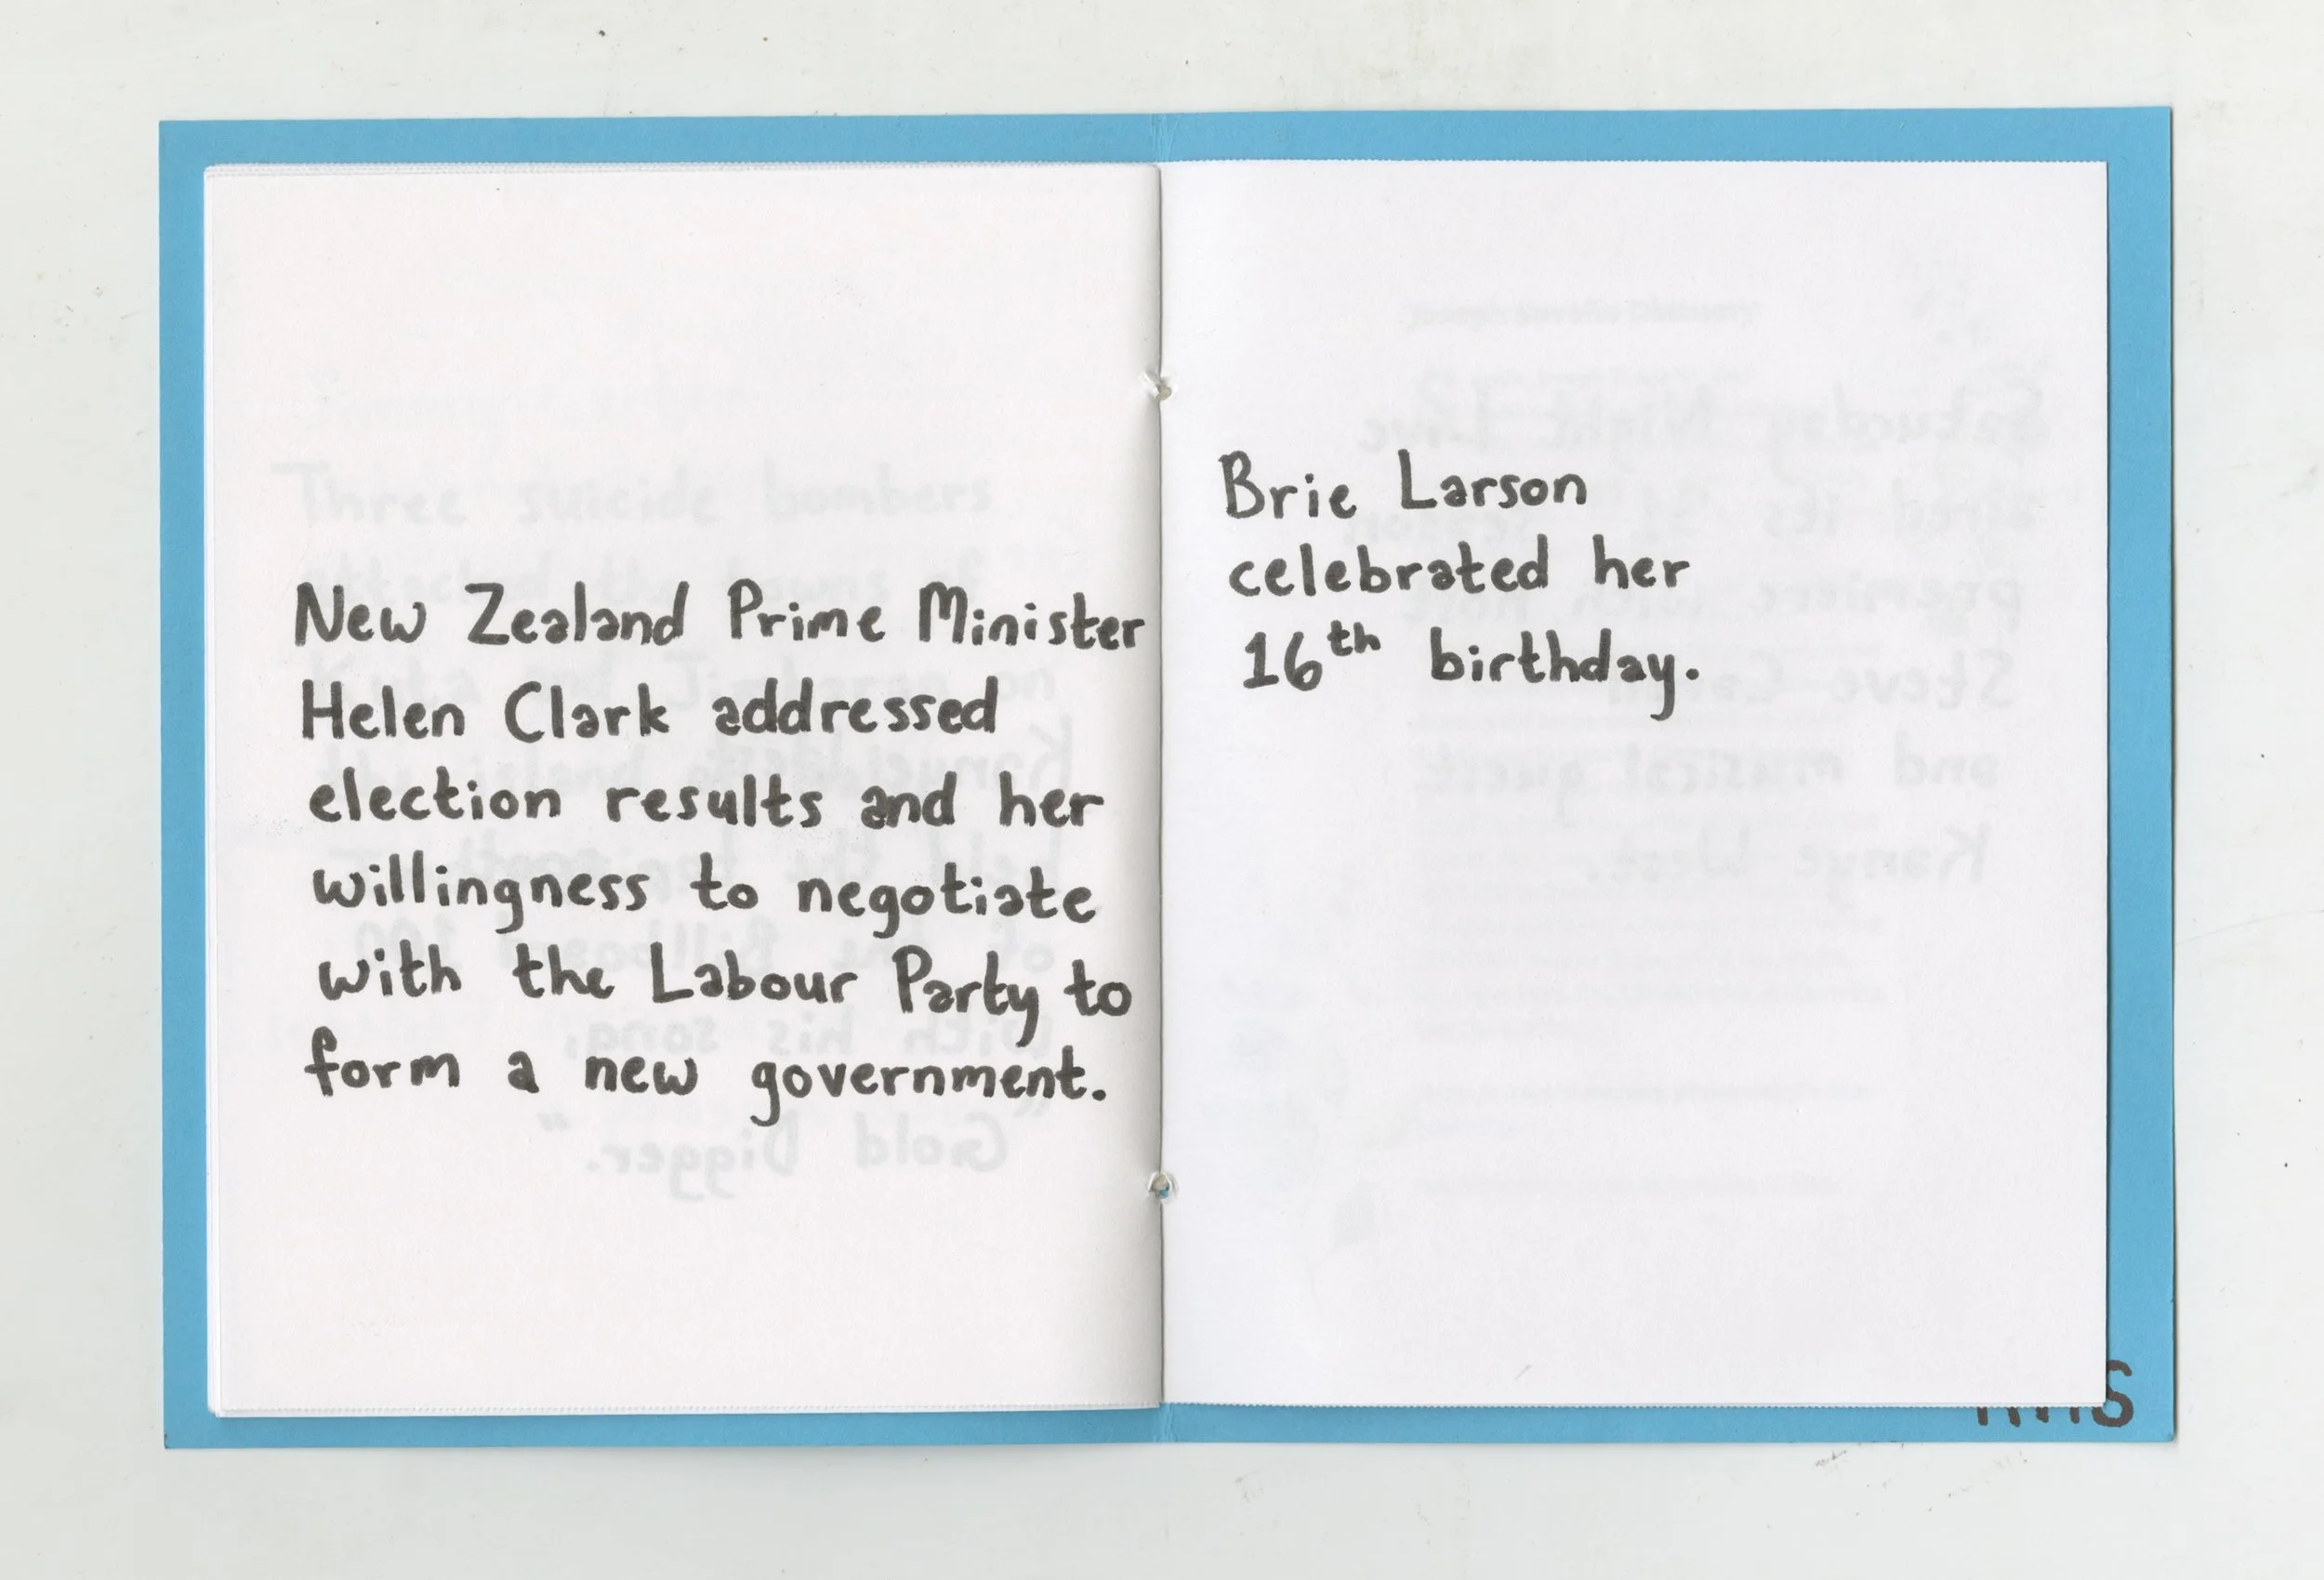 New Zealand Prime Minister
Helen Clark addressed
election results and her
willingness to negotiate
with the Labour Party to
form a new government.
Brie Larson
celebrated her
16th birthday.